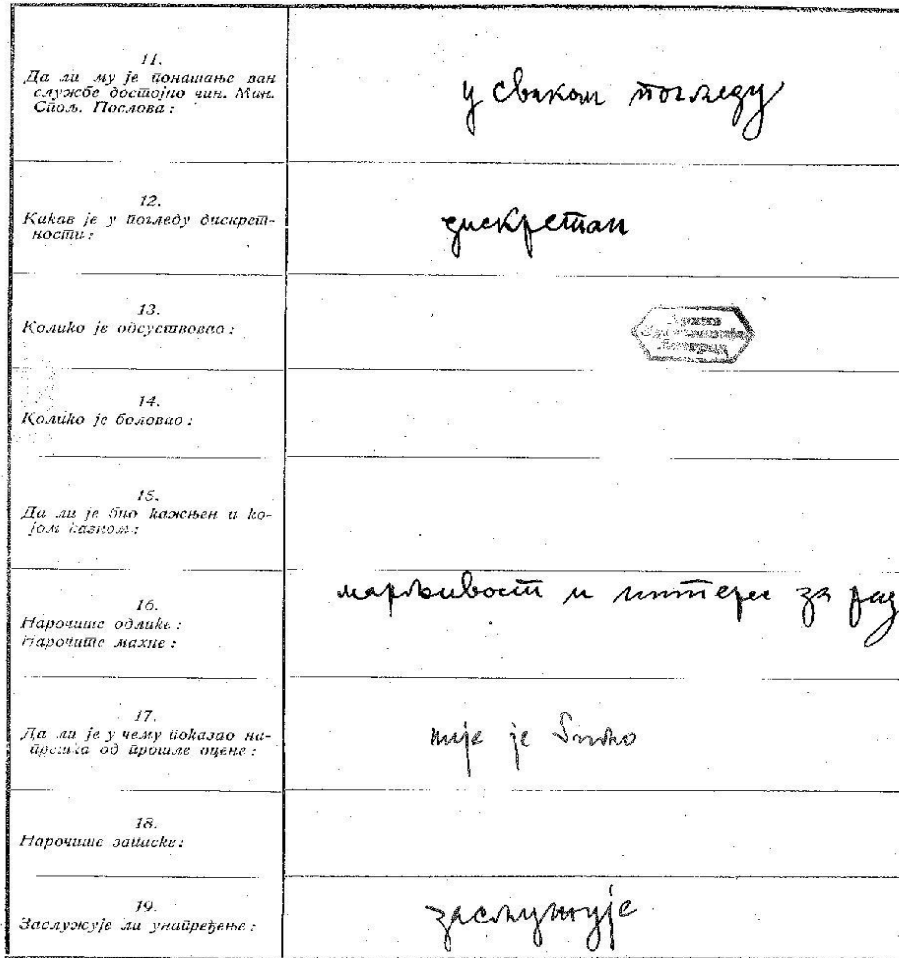 11.
Да ли му је понашање ван
службе достојно чин. Мин.
Спољ. Послова:
у сваком погледу
12.
Какав је у погледу дискрет-
ности:
дискретан
13.
Колико је одсуствовао:
Архив
Југославије
Београд
14.
Колико је боловао:
15.
Да ли је био кажњен и ко-
јом казном:
16.
Нарочите одлике:
Нарочите махне:
марљивост и интерес за рад
17.
Да ли је у чему показао на-
претка од прошле оцене:
није је било
18.
Нарочите записке:
19.
Заслужује ли унапређење:
заслужује